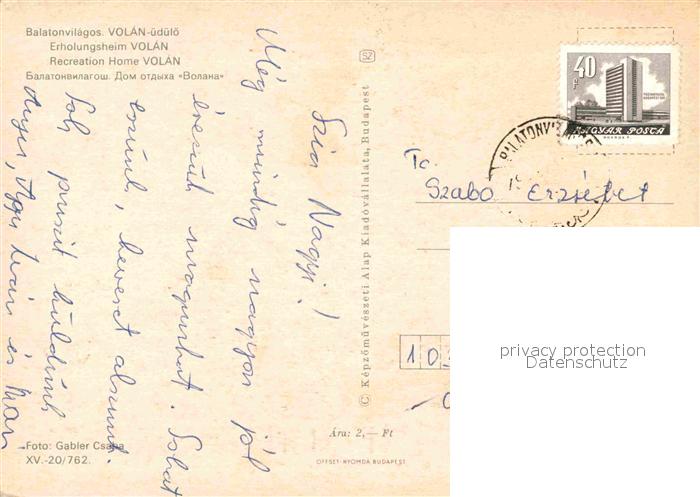 Balatonvilágos. VOLÁN-üdülő
Erholungsheim VOLÁN
Recreation Home VOLÁN
Балатонвилагош. Дом отдыха «Волана»
Szia Nagyi!
Még mindig nagyon jól
érezzük magunkat. Sokat
eszünk, keveset alszunk.
Sok puszit küldünk
Ági, Iván és
Foto: Gabler Csaba
XV.-20/762.
SZ
© Képzőművészeti Alap Kiadóvállalata, Budapest
40
MAGYAR POSTA
BALATONV
To
Szabo Erzsébet
10
Ára: 2,— Ft
OFFSET-NYOMDA BUDAPEST
privacy protection
Datenschutz